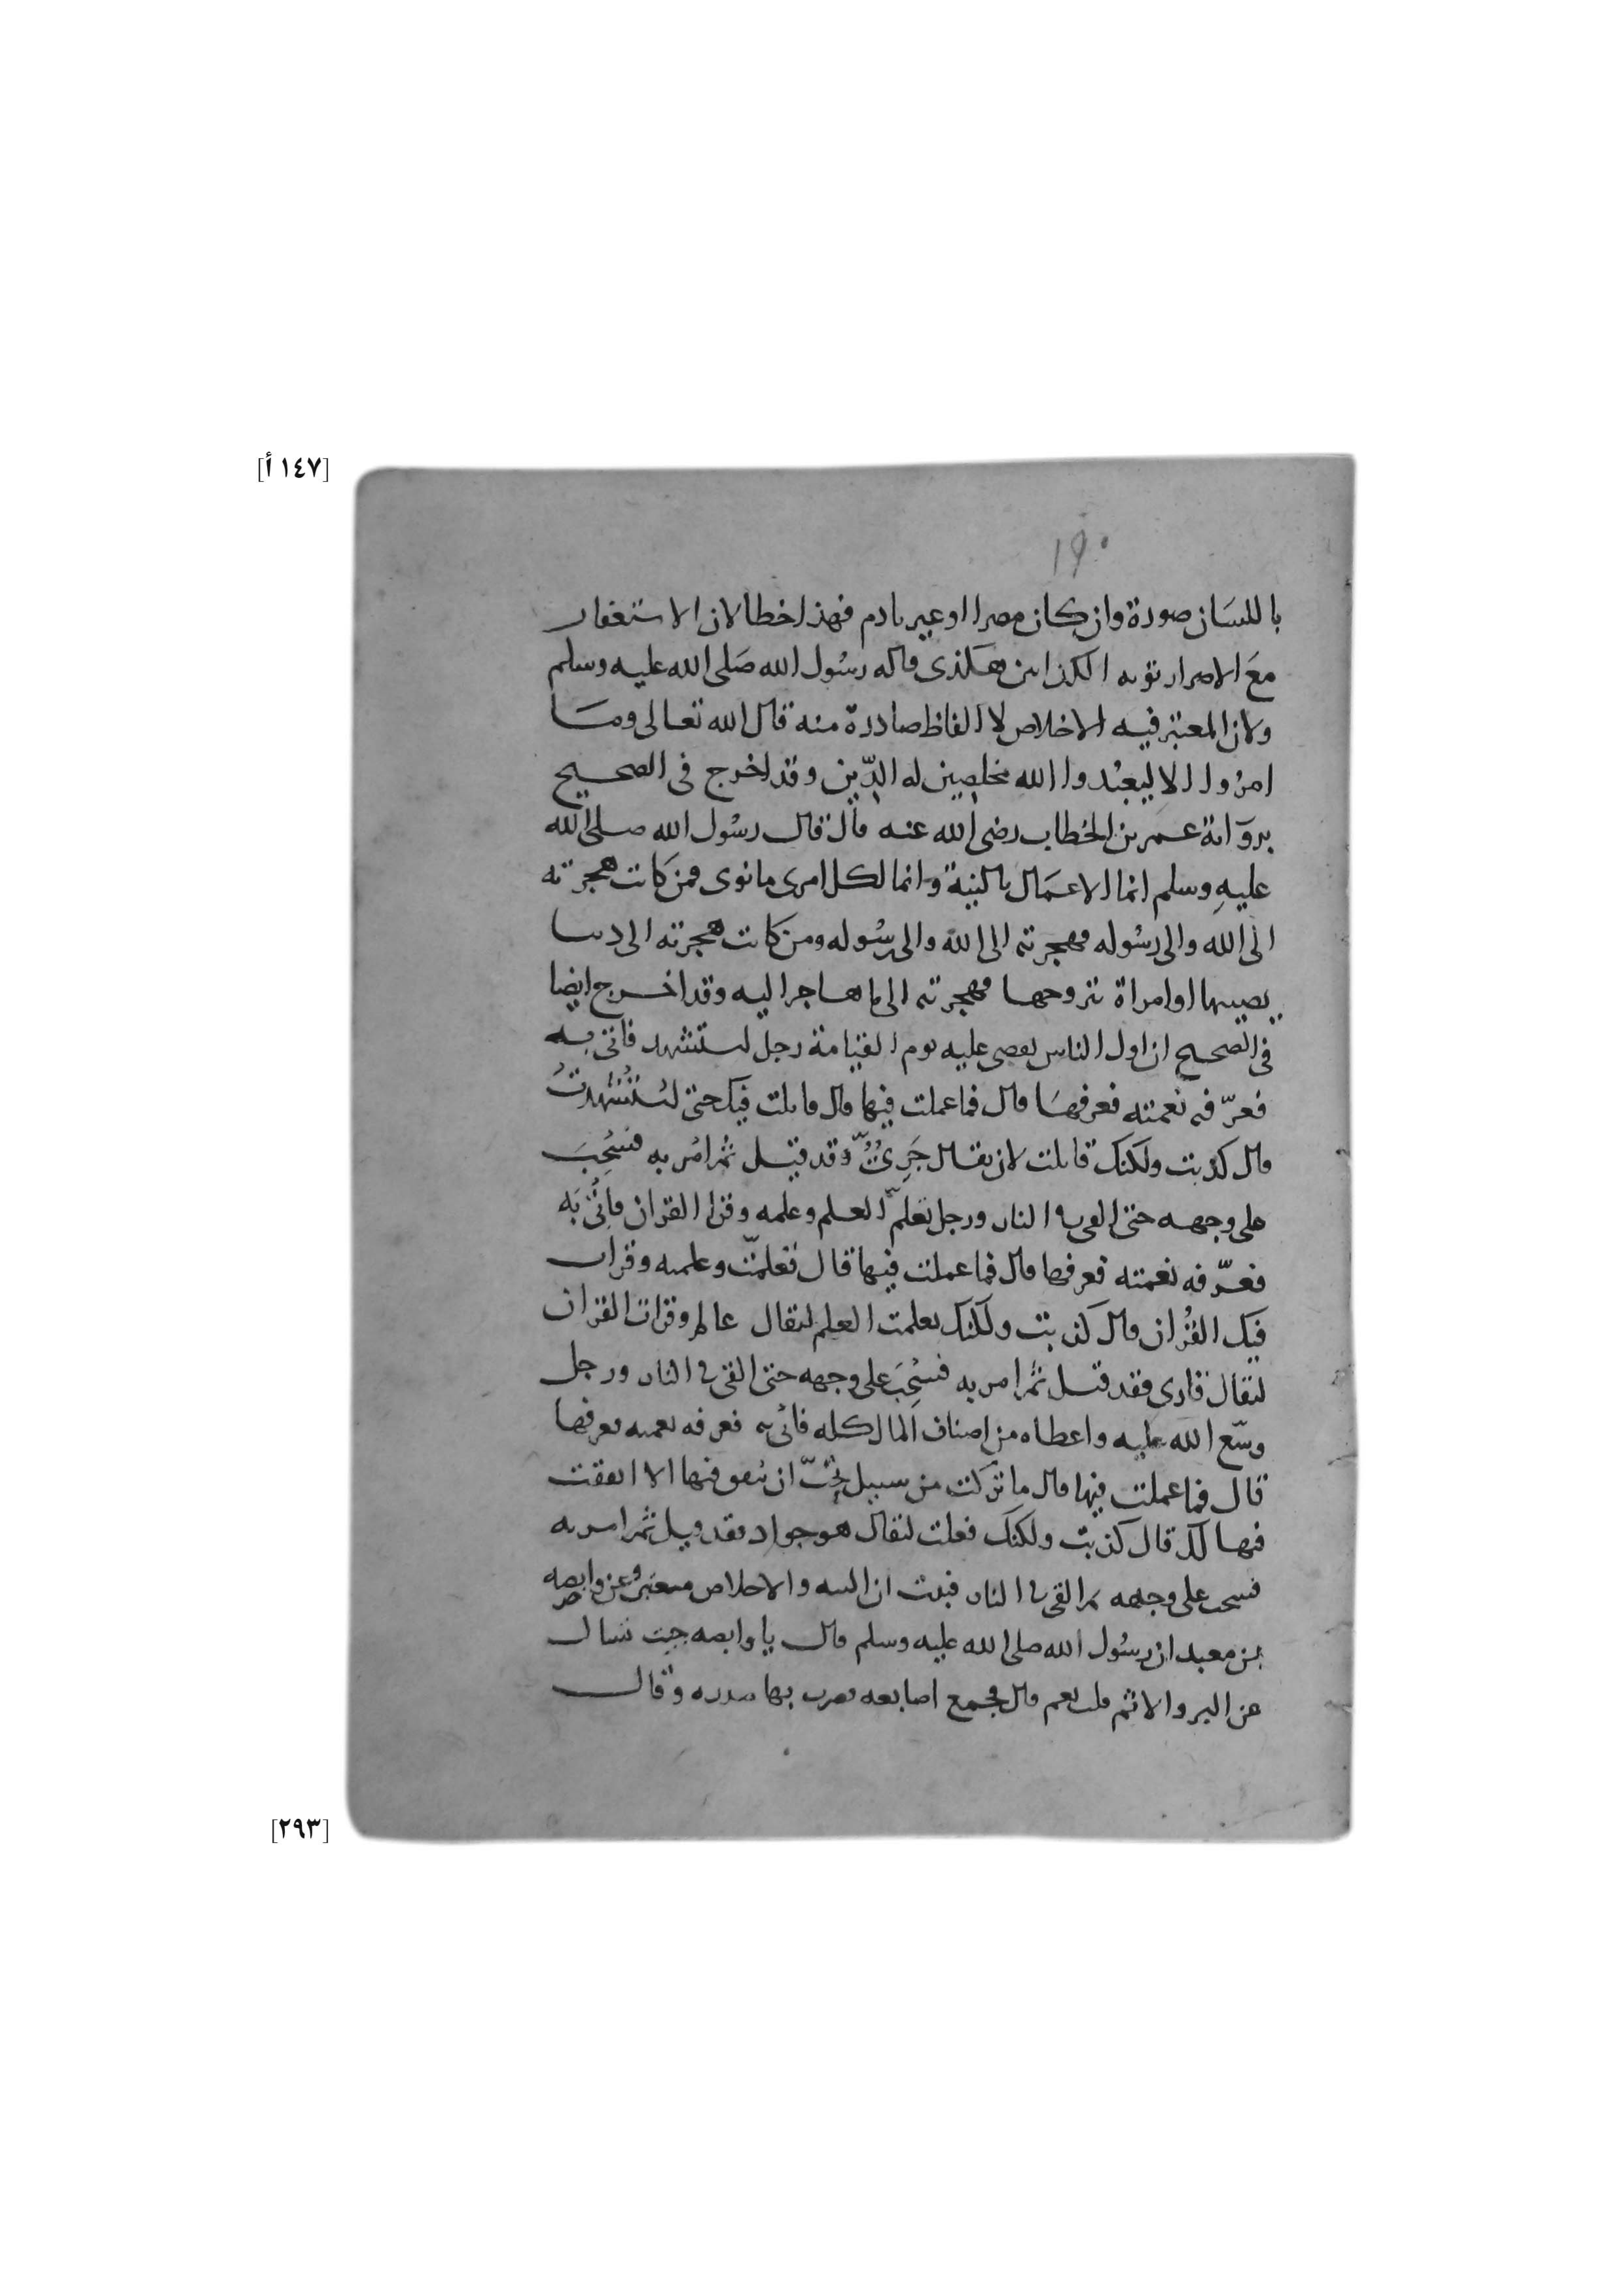 [١٤٧ أ]
١٩٠
باللسان صورة وان كان مصرا او غير نادم فهذا خطا لان الاستغفار
مع الاصرار توبه الكذابين هكذى قاله رسول الله صلى الله عليه وسلم
ولان المعتبر فيه الاخلاص لا الفاظ صادرة منه قال الله تعالى وما
امرُوا الا ليعبُدوا الله مخلصين له الدّين وقد اخرج فى الصحيح
بروَاية عمر بن الخطاب رضى الله عنه قال قال رسُول الله صلى الله
عليهِ وسلم انما الاعمَال بالنية وانما لكل امرى ما نوى فمن كانت هجرته
الى الله والى رسُوله فهجرته الى الله والى رسُوله ومن كانت هجرته الى دنيا
يصيبها او امراة يتزوجها فهجرته الى ما هاجر اليه وقد اخرج ايضا
فى الصحيح ان اول الناس يقضى عليه يوم القيامة رجل استشهد فاتى به
فعرّفه نعمته فعرفهَا قال فما عملت فيها قال قاتلت فيك حتى استُشهدتُ
قال كذبت ولكنك قاتلت لان يقال جَرِىٌّ وقد قيل ثم امُر به فسُحِبَ
على وجهه حتى القى فى النار ورجل تعلّم العلم وعلمه وقرا القران فاُتى به
فعرّفه نعمته فعرفها قال فما عملت فيها قال تعلمّت وعلمته وقرات
فيك القُران قال كذبت ولكنك تعلمت العلم ليقال عالم وقرات القران
ليقال قارى فقد قيل ثم امر به فسُحِبَ على وجهه حتى القى فى النار ورجل
وسّع الله عليه واعطاه من اصناف المال كله فاتى به فعرفه نعمته فعرفها
قال فما عملت فيها قال ما تركت من سبيل تحُبّ ان ينفق فيها الا انفقت
فيها لك قال كذبت ولكنك فعلت ليقال هو جواد فقد قيل ثم امر به
فسحب على وجهه ثم القى فى النار فثبت ان النيه والاخلاص معتبر وعن وابصه
بن معبد ان رسُول الله صلى الله عليه وسلم قال يا وابصه جيت تسال
عن البر والاثم قلت نعم قال فجمع اصابعه فضرب بها صدره وقال
[٢٩٣]